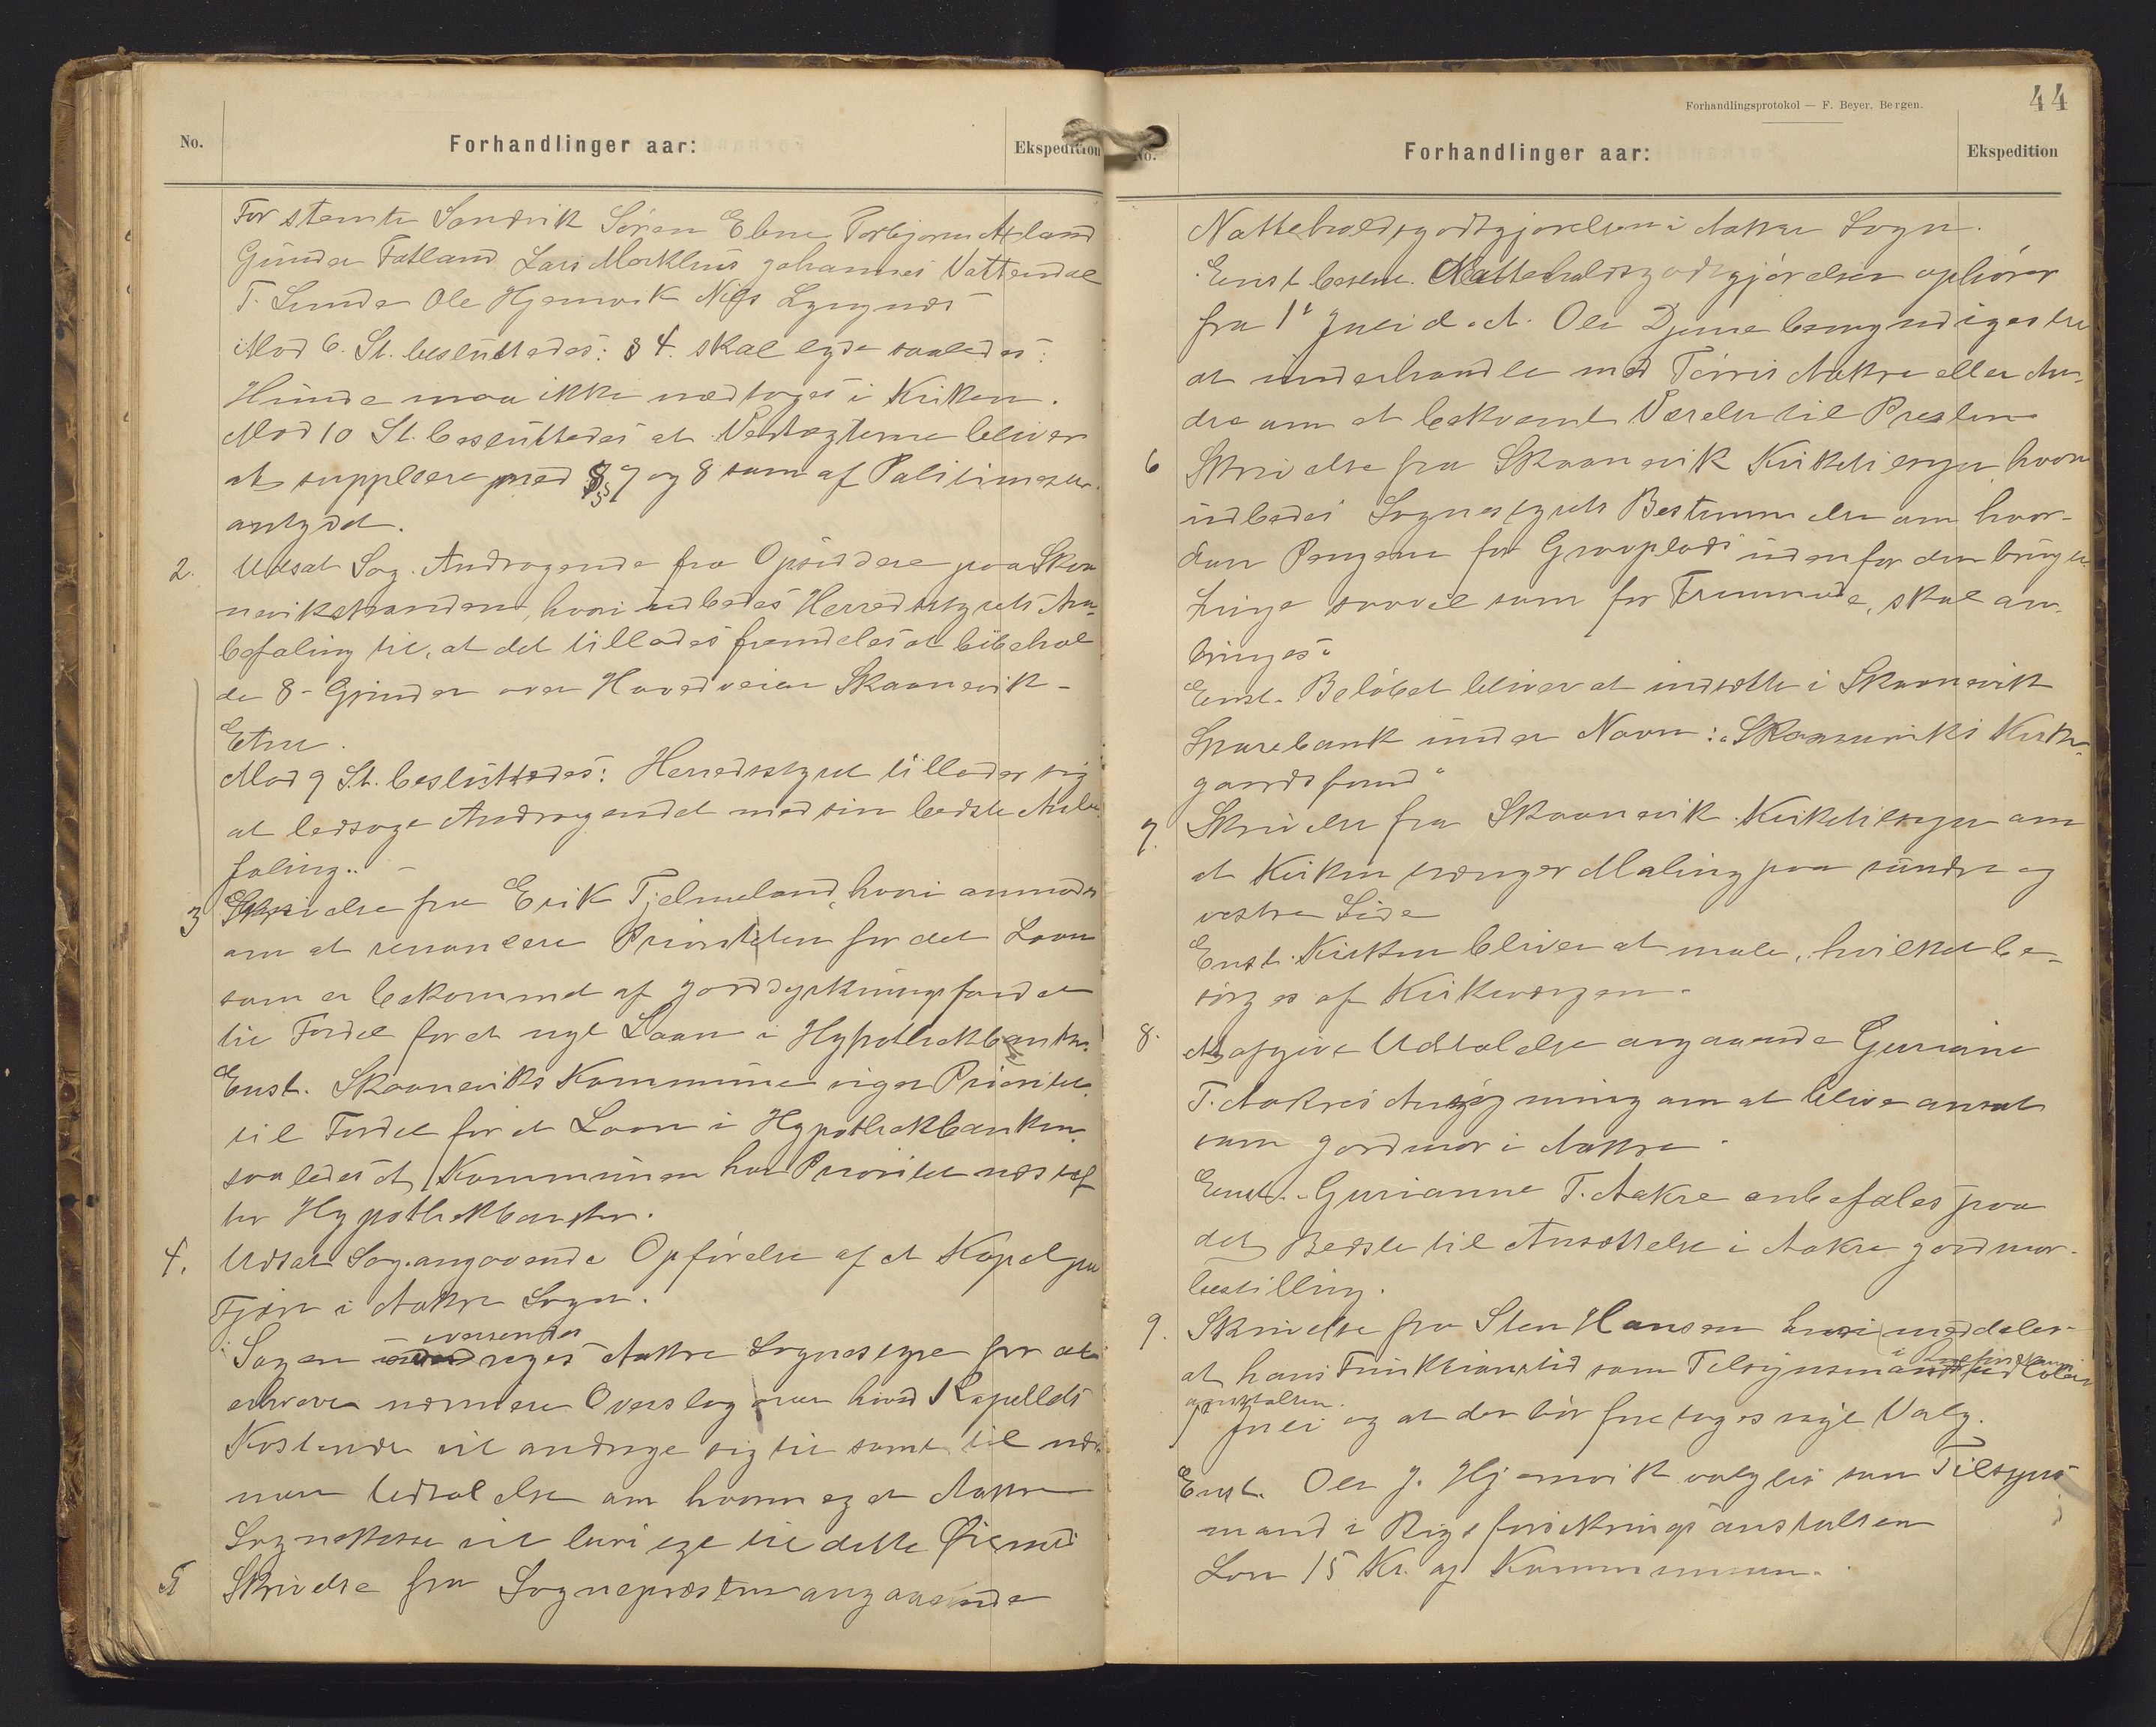 No.
Forhandlinger aar:
Ekspedition
For stemte Sandvik Søren Ebne Torbjørn Axland
Gunder Fatland Lars Mæklhus Johannes Vattendal
T. Lunde Ole Hjemvik Nils Lyngnæs
Mod 6. St. besluttedes: § 4. skal lyde saaledes:
Hunde maa ikke medtages i Kirken.
Mod 10 St. besluttedes at Vedtægterne bliver
at supplere med §§ 7 og 8 som af Politimester
antydet.
2. Udsat Sag. Andragende fra Opsiddere paa Skaa
nevikstranden, hvori udbedes Herredsstyrets An-
befaling til, at det tillades fremdeles at bibehol
de 8 - Grinder over Hovedveien Skaanevik -
Etne.
Mod 9 St. besluttedes: Herredsstyret tillader sig
at ledsage Andragendet med sin bedste Anbe-
faling. -
3 Skrivelse fra Erik Tjelmeland, hvori anmodes
om at renoncere Prioriteten for det Laan
som er bekommet af Jorddyrkningsfondet
til Fordel for et nyt Laan i Hypothekbanken.
Enst. Skaaneviks Kommune viger Prioritet
til Fordel for et Laan i Hypothekbanken,
saaledes at Kommunen har Prioritet næst ef
ter Hypothekbanken.
4. Udsat Sag angaaende Opførelse af et Kapel paa
Fjøn i Aakre Sogn.
oversendes
Sagen Aakre Sognestyre for at
erhverve nærmere Overslag over hvad Kapellets
Kostende vil andrage sig til samt til nær-
mere Udtalelse om hvormeget Aakre
Sognekasse vil bevilge til dette Øiemed
5 Skrivelse fra Sognepræsten angaaende
Forhandlingsprotokol — F. Beyer, Bergen.
44
No.
Forhandlinger aar:
Ekspedition
Natteholdsgodtgjørelsen i Aakre Sogn.
Enst besl. Natteholdsgodtgjørelsen ophører
fra 1ste Juli d. A. Ole Djuve bemyndiges til
at underhandle med Tørris Aakre eller An-
dre om et bekvemt Værelse til Presten
6 Skrivelse fra Skaanevik Kirketilsyn, hvori
udbedes Sognestyrets Bestemmelse om hvor-
dan Pengene for Gravplads udenfor den brugte
saavel som for Fremmede, skal an-
bringes.
Enst. Beløbet bliver at indsætte i Skaanevik
Sparebank under Navn: "Skaaneviks Kirke-
gaardsfond"
7. Skrivelse fra Skaanevik Kirketilsyn om
at Kirken trænger Maling paa søndre og
vestre Side
Enst. Kirken bliver at male, hvilket be-
sørges af Kirkeværgen.
8. At afgive Udtalelse angaaende Guriane
T. Aakres Ansøgning om at blive ansat
som Jordmor i Aakre.
Enst. Gurianne T. Aakre anbefales paa
det Bedste til Ansættelse i Aakre Jordmor-
bestilling.
9. Skrivelse fra Sten Hansen hvori meddeles
at hans Funktionstid som Tilsynsmand
anstalten
1ste Juli og at der bør foretages nyt Valg.
Enst. Ole J. Hjemvik valgtes som Tilsyns
mand i Rigsforsikringsanstalten
Løn 15 Kr. af Kommunen.